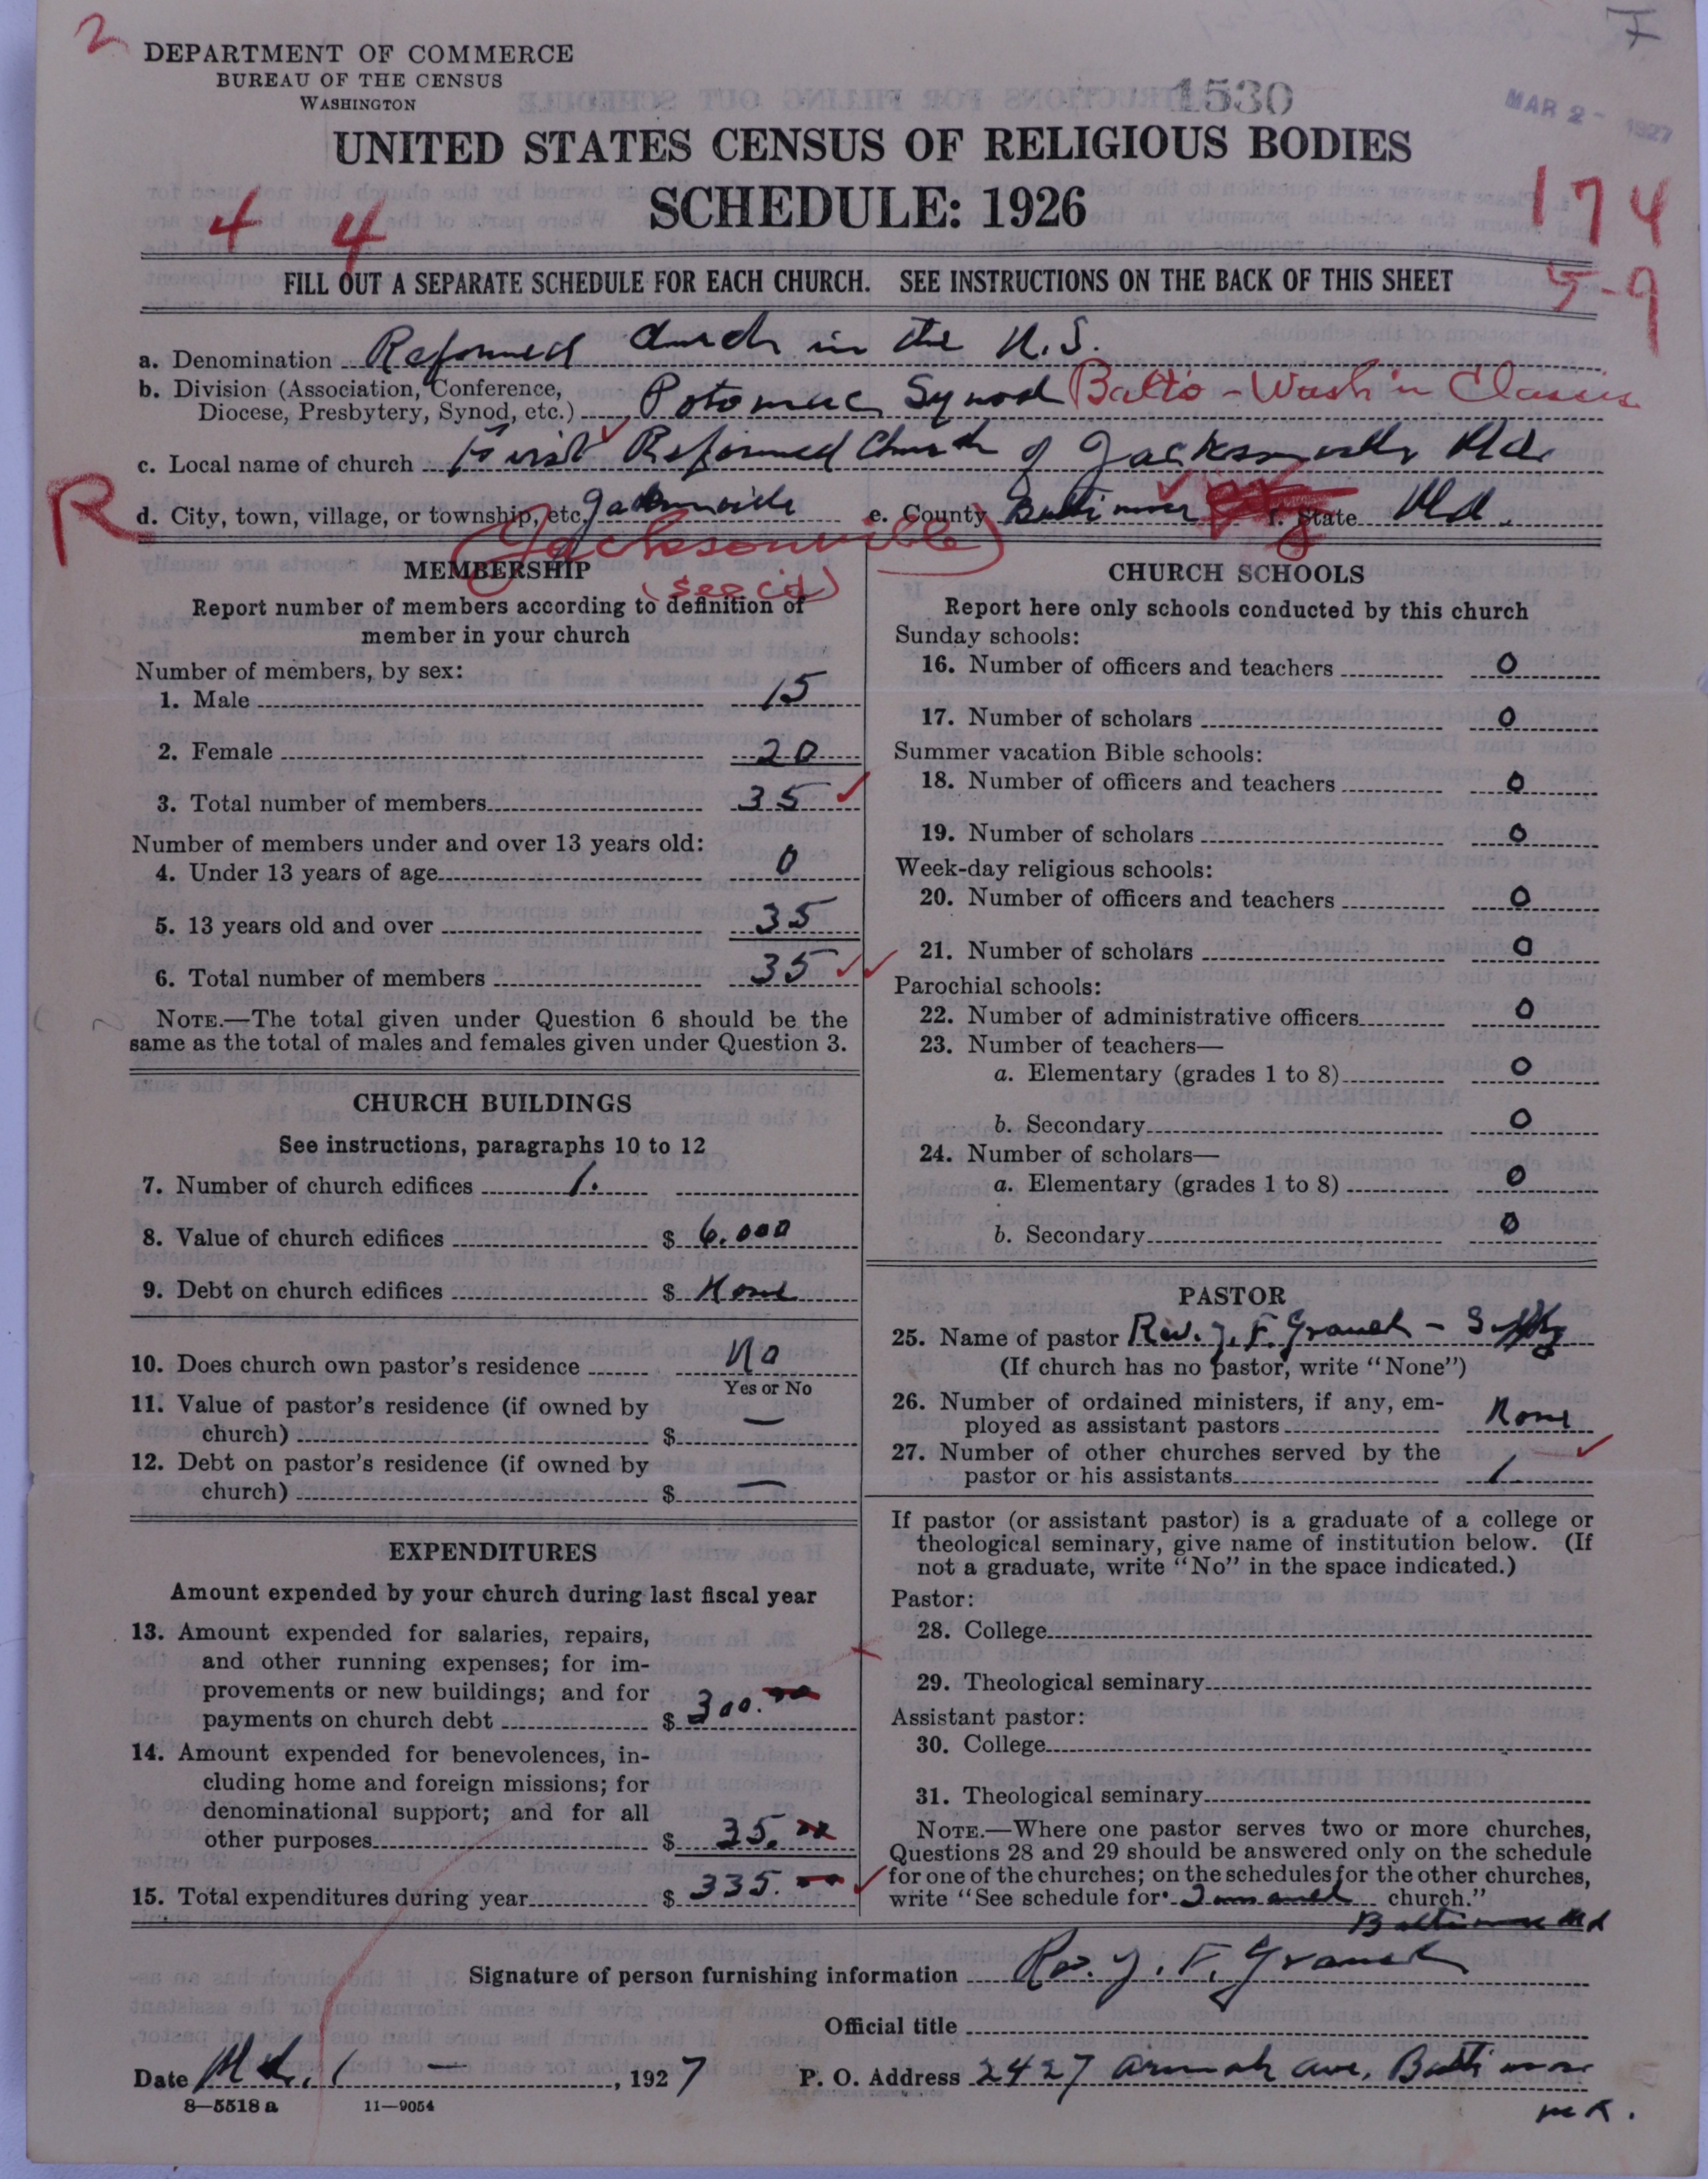 2
F
DEPARTMENT OF COMMERCE
BUREAU OF THE CENSUS
WASHINGTON
1530
MAR 2 - 1927
UNITED STATES CENSUS OF RELIGIOUS BODIES
SCHEDULE: 1926
4 4
174
5-9
FILL OUT A SEPARATE SCHEDULE FOR EACH CHURCH. SEE INSTRUCTIONS ON THE BACK OF THIS SHEET
a. Denomination Reformed Church in the U.S.
b. Division (Association, Conference,
Diocese, Presbytery, Synod, etc.) Potomac Synod Balto - Wash'n Classis
c. Local name of church First Reformed Church of Jacksonville Md.
R
d. City, town, village, or township, etc. Jacksonville e. County Baltimore f. State Md.
(Jacksonville)
(see c'd)
MEMBERSHIP
Report number of members according to definition of
member in your church
Number of members, by sex:
1. Male 15
2. Female 20
3. Total number of members 35
Number of members under and over 13 years old:
4. Under 13 years of age 0
5. 13 years old and over 35
6. Total number of members 35
NOTE.—The total given under Question 6 should be the
same as the total of males and females given under Question 3.
CHURCH BUILDINGS
See instructions, paragraphs 10 to 12
7. Number of church edifices 1.
8. Value of church edifices $ 6,000
9. Debt on church edifices $ None
10. Does church own pastor's residence No
Yes or No
11. Value of pastor's residence (if owned by
church) $ —
12. Debt on pastor's residence (if owned by
church) $ —
EXPENDITURES
Amount expended by your church during last fiscal year
13. Amount expended for salaries, repairs,
and other running expenses; for im-
provements or new buildings; and for
payments on church debt $ 300.00
14. Amount expended for benevolences, in-
cluding home and foreign missions; for
denominational support; and for all
other purposes $ 35.00
15. Total expenditures during year $ 335.00
CHURCH SCHOOLS
Report here only schools conducted by this church
Sunday schools:
16. Number of officers and teachers 0
17. Number of scholars 0
Summer vacation Bible schools:
18. Number of officers and teachers 0
19. Number of scholars 0
Week-day religious schools:
20. Number of officers and teachers 0
21. Number of scholars 0
Parochial schools:
22. Number of administrative officers 0
23. Number of teachers—
a. Elementary (grades 1 to 8) 0
b. Secondary 0
24. Number of scholars—
a. Elementary (grades 1 to 8) 0
b. Secondary 0
PASTOR
25. Name of pastor Rev. J. F. -
(If church has no pastor, write "None")
26. Number of ordained ministers, if any, em-
ployed as assistant pastors None
27. Number of other churches served by the
pastor or his assistants 1
If pastor (or assistant pastor) is a graduate of a college or
theological seminary, give name of institution below. (If
not a graduate, write "No" in the space indicated.)
Pastor:
28. College
29. Theological seminary
Assistant pastor:
30. College
31. Theological seminary
NOTE.—Where one pastor serves two or more churches,
Questions 28 and 29 should be answered only on the schedule
for one of the churches; on the schedules for the other churches,
write "See schedule for church."
Baltimore Md
Signature of person furnishing information Rev. J. F.
Official title
Date 1 —, 1927 P. O. Address 2427 ave, Baltimore
Md.
8—5518 a 11—9054